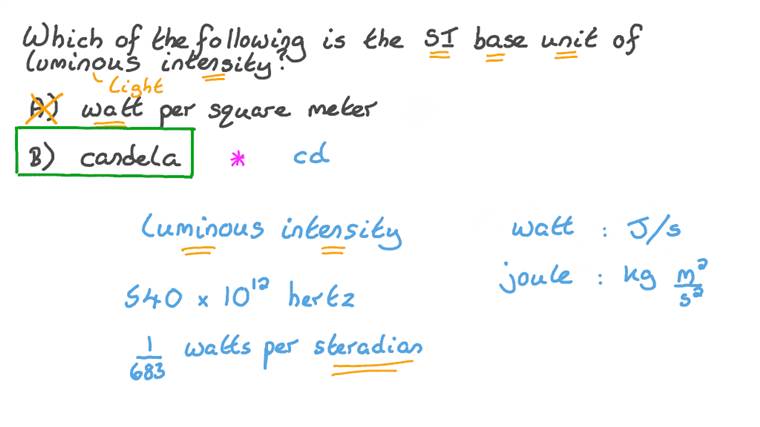 Which of the following is the SI base unit of
luminous intensity?
Light
A) watt per square meter
B) candela * cd
Luminous intensity
watt : J/s
540 × 10¹² hertz
joule : kg m²/s²
1/683 watts per steradian